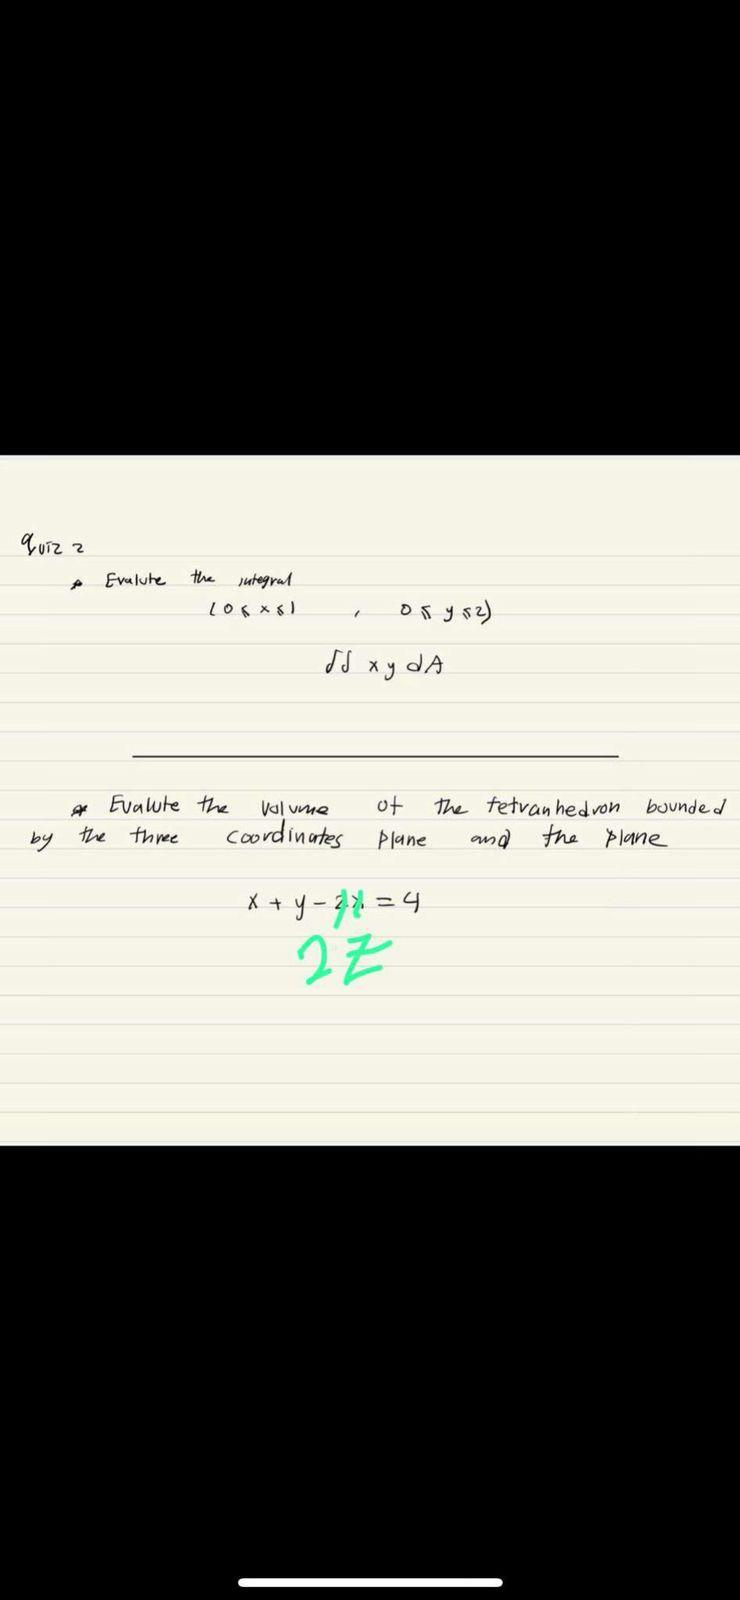 quiz 2
* Evalute the integral
(0 ≤ x ≤ 1 , 0 ≤ y ≤ 2)
∫∫ x y dA
* Evalute the volume of the tetranhedron bounded
by the three coordinates plane and the plane
x + y - 2x = 4
2z